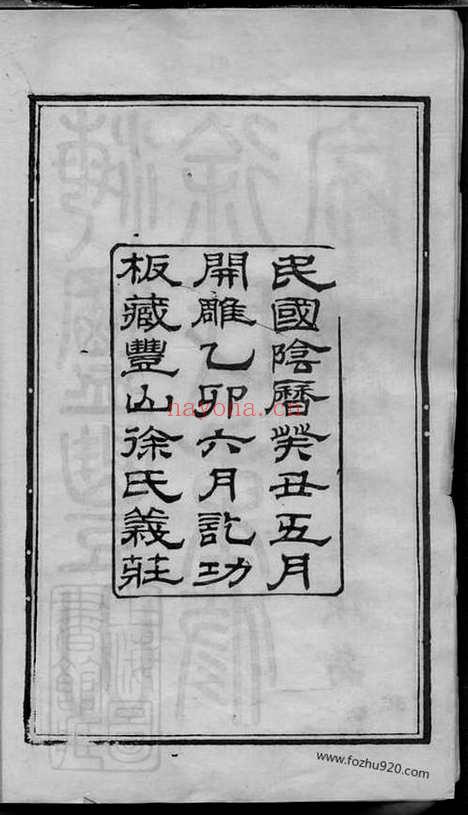 民國陰曆癸丑五月
開雕乙卯六月訖功
板藏豐山徐氏義莊
hayona.cn
www.fozhu920.com